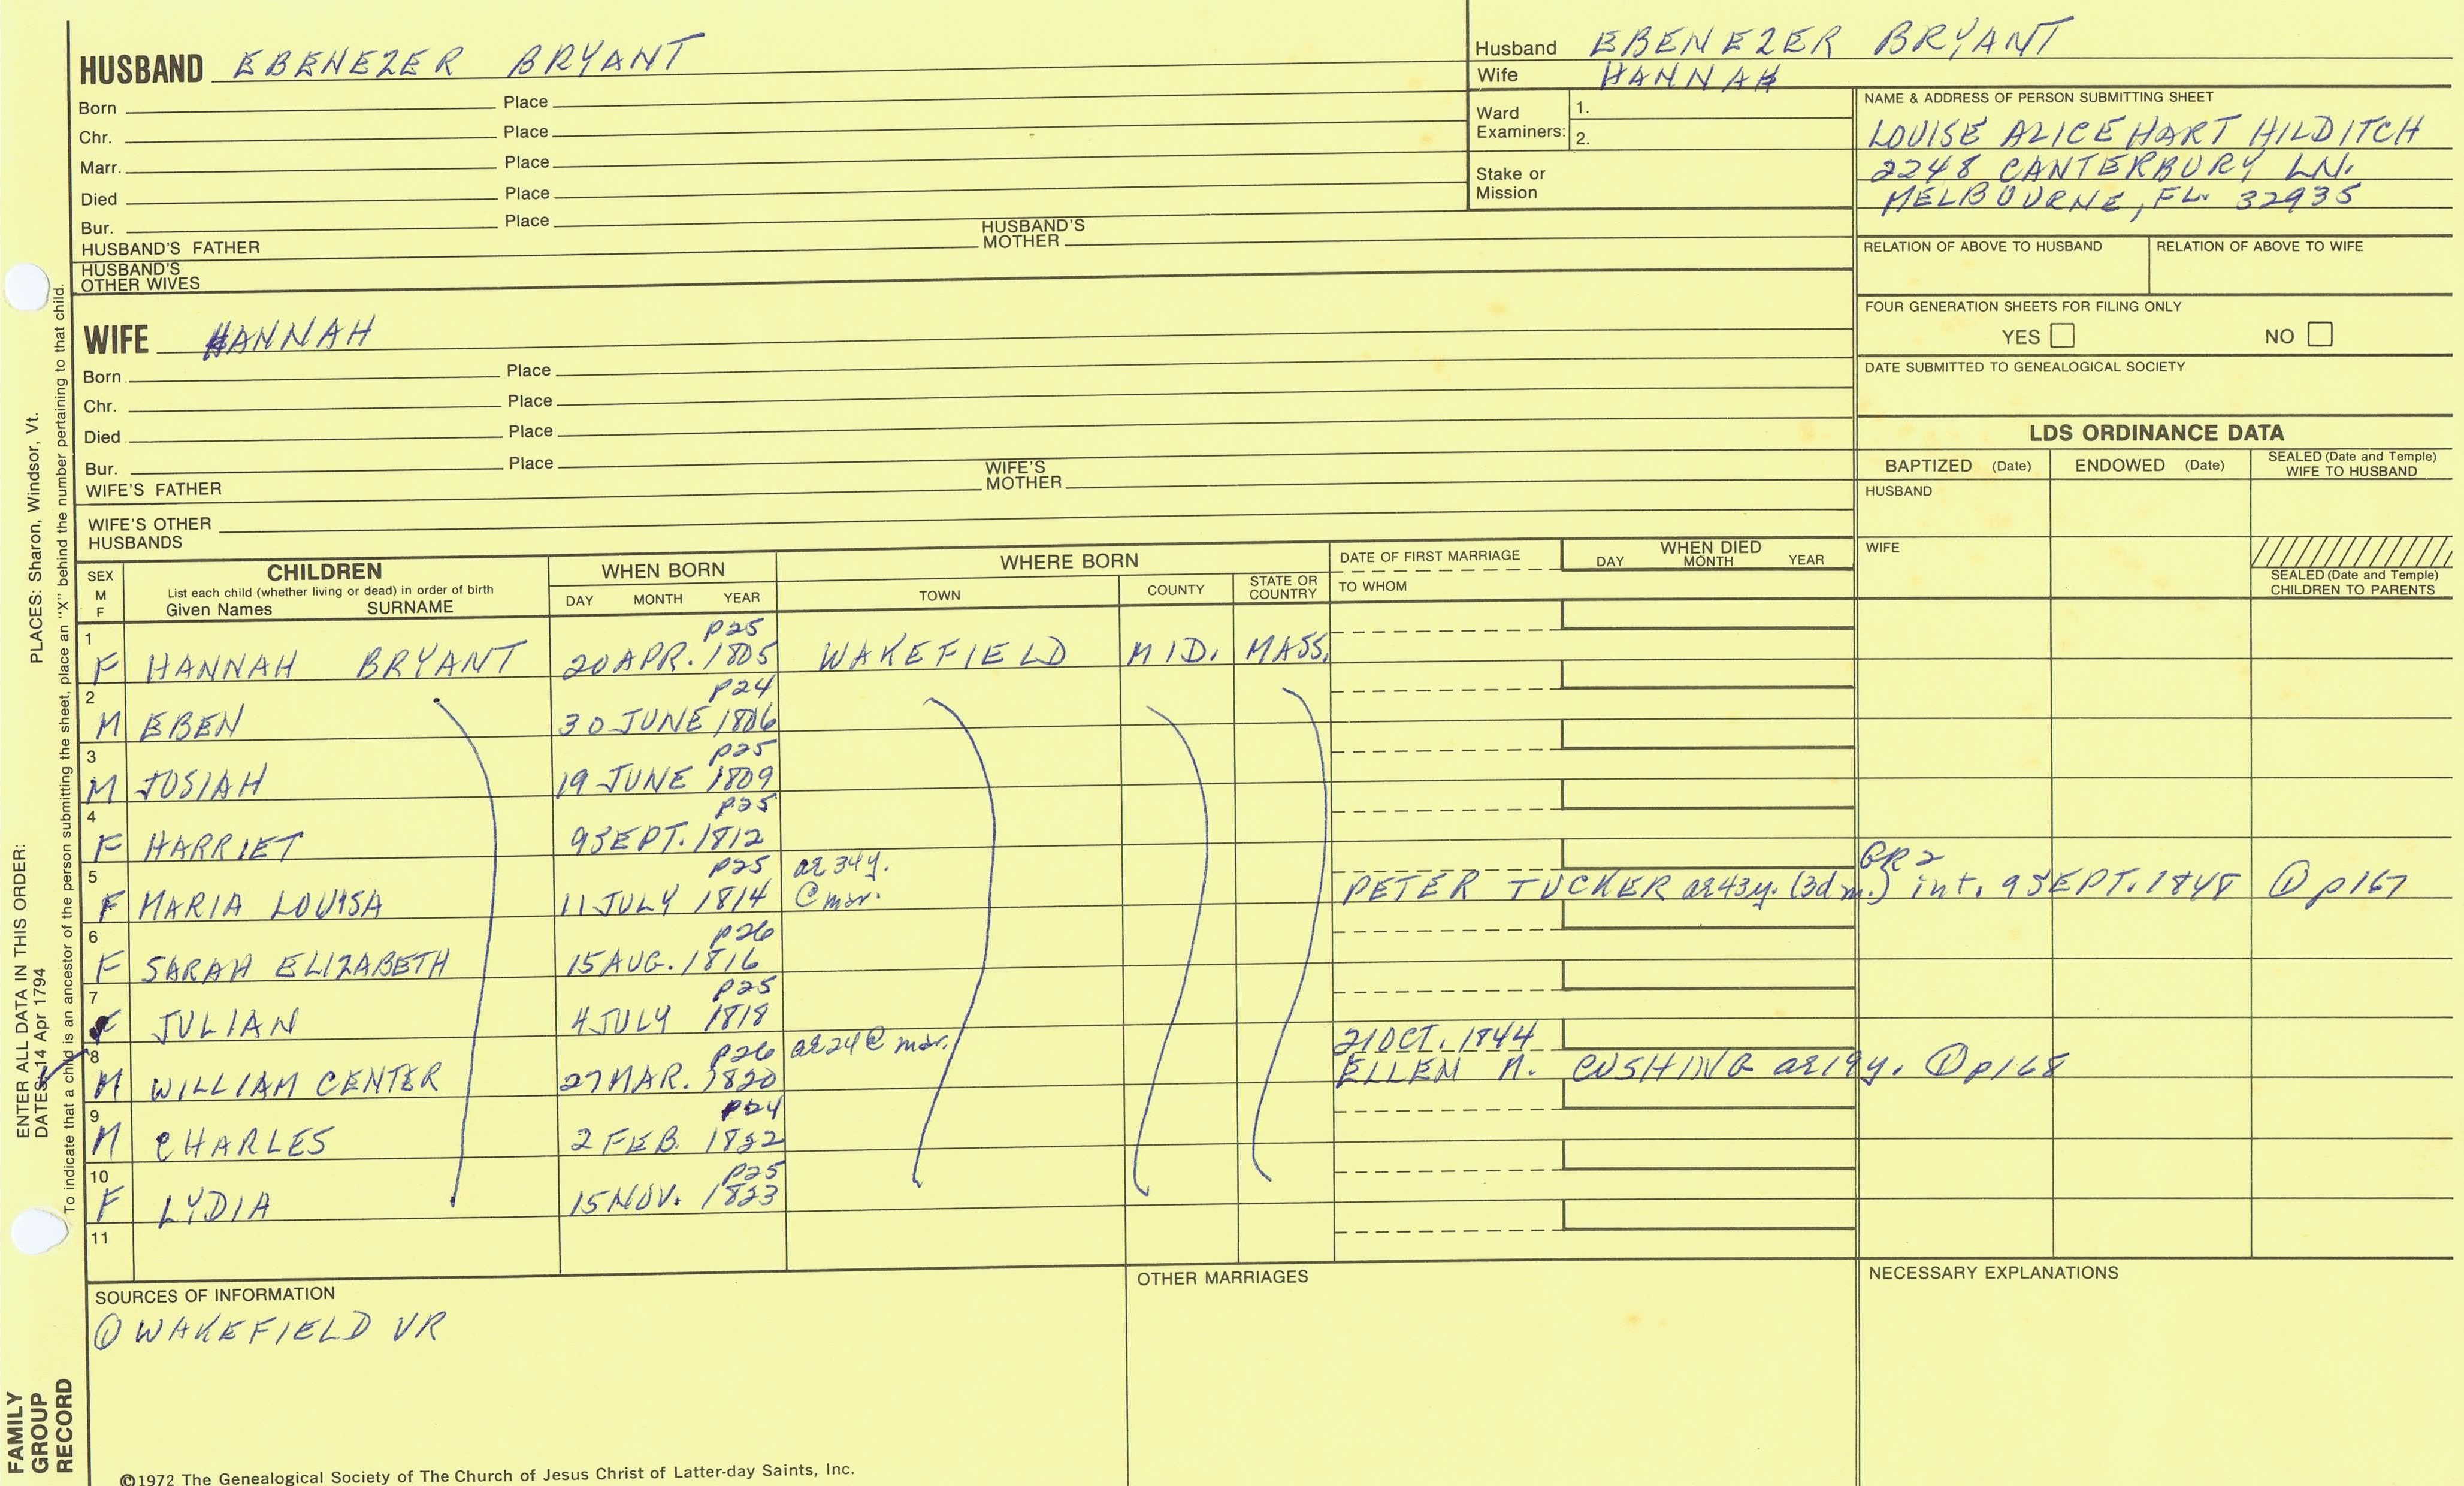 HUSBAND EBENEZER BRYANT
Born Place
Chr. Place
Marr. Place
Died Place
Bur. Place
HUSBAND'S FATHER HUSBAND'S MOTHER
HUSBAND'S OTHER WIVES
Husband EBENEZER BRYANT
Wife HANNAH
Ward Examiners: 1.
2.
Stake or Mission
NAME & ADDRESS OF PERSON SUBMITTING SHEET
LOUISE ALICE HART HILDITCH
2248 CANTERBURY LN.
MELBOURNE, FL. 32935
RELATION OF ABOVE TO HUSBAND RELATION OF ABOVE TO WIFE
FOUR GENERATION SHEETS FOR FILING ONLY
YES NO
DATE SUBMITTED TO GENEALOGICAL SOCIETY
WIFE HANNAH
Born Place
Chr. Place
Died Place
Bur. Place
WIFE'S FATHER WIFE'S MOTHER
WIFE'S OTHER HUSBANDS
LDS ORDINANCE DATA
BAPTIZED (Date) ENDOWED (Date) SEALED (Date and Temple) WIFE TO HUSBAND
HUSBAND
WIFE
SEALED (Date and Temple) CHILDREN TO PARENTS
SEX M F
CHILDREN
List each child (whether living or dead) in order of birth
Given Names SURNAME
WHEN BORN
DAY MONTH YEAR
WHERE BORN
TOWN COUNTY STATE OR COUNTRY
DATE OF FIRST MARRIAGE
TO WHOM
WHEN DIED
DAY MONTH YEAR
1 p25
F HANNAH BRYANT 20 APR. 1805 WAKEFIELD MID. MASS.
2 p24
M EBEN 30 JUNE 1806
3 p25
M JOSIAH 19 JUNE 1809
4 p25
F HARRIET 9 SEPT. 1812
5 p25 ae 34y. GR2
F MARIA LOUISA 11 JULY 1814 @ mar. PETER TUCKER ae 43y. (3d m.) int. 9 SEPT. 1848 ① p167
6 p26
F SARAH ELIZABETH 15 AUG. 1816
7 p25
F JULIAN 4 JULY 1818
8 p26 ae 24 @ mar. 21 OCT. 1844
M WILLIAM CENTER 27 MAR. 1820 ELLEN M. CUSHING ae 19y. ① p168
9 p24
M CHARLES 2 FEB. 1822
10 p25
F LYDIA 15 NOV. 1823
11
SOURCES OF INFORMATION
① WAKEFIELD VR
OTHER MARRIAGES
NECESSARY EXPLANATIONS
©1972 The Genealogical Society of The Church of Jesus Christ of Latter-day Saints, Inc.
FAMILY GROUP RECORD
ENTER ALL DATA IN THIS ORDER:
DATES: 14 Apr 1794
PLACES: Sharon, Windsor, Vt.
To indicate that a child is an ancestor of the person submitting the sheet, place an "X" behind the number pertaining to that child.